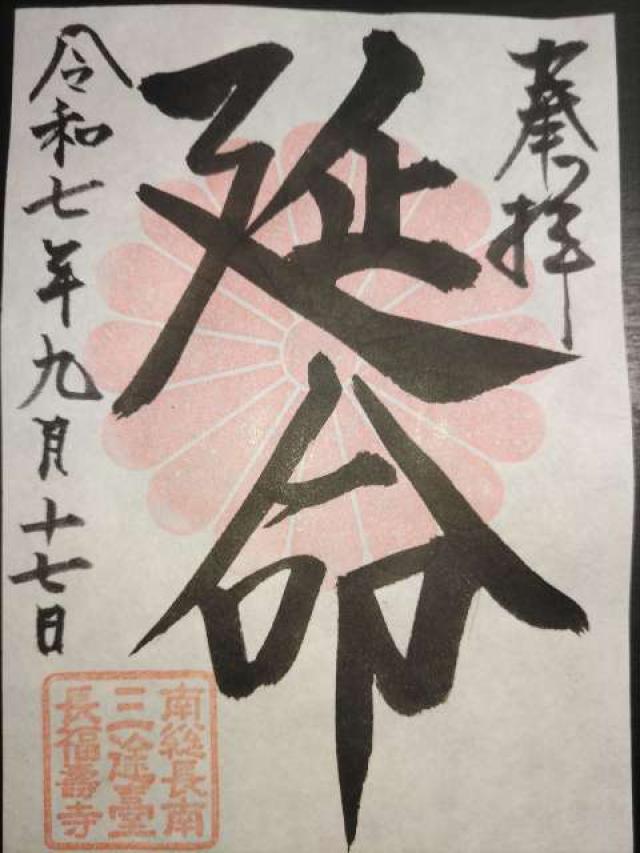 奉拝
延命
令和七年九月十七日
南総長南
三途臺
長福壽寺